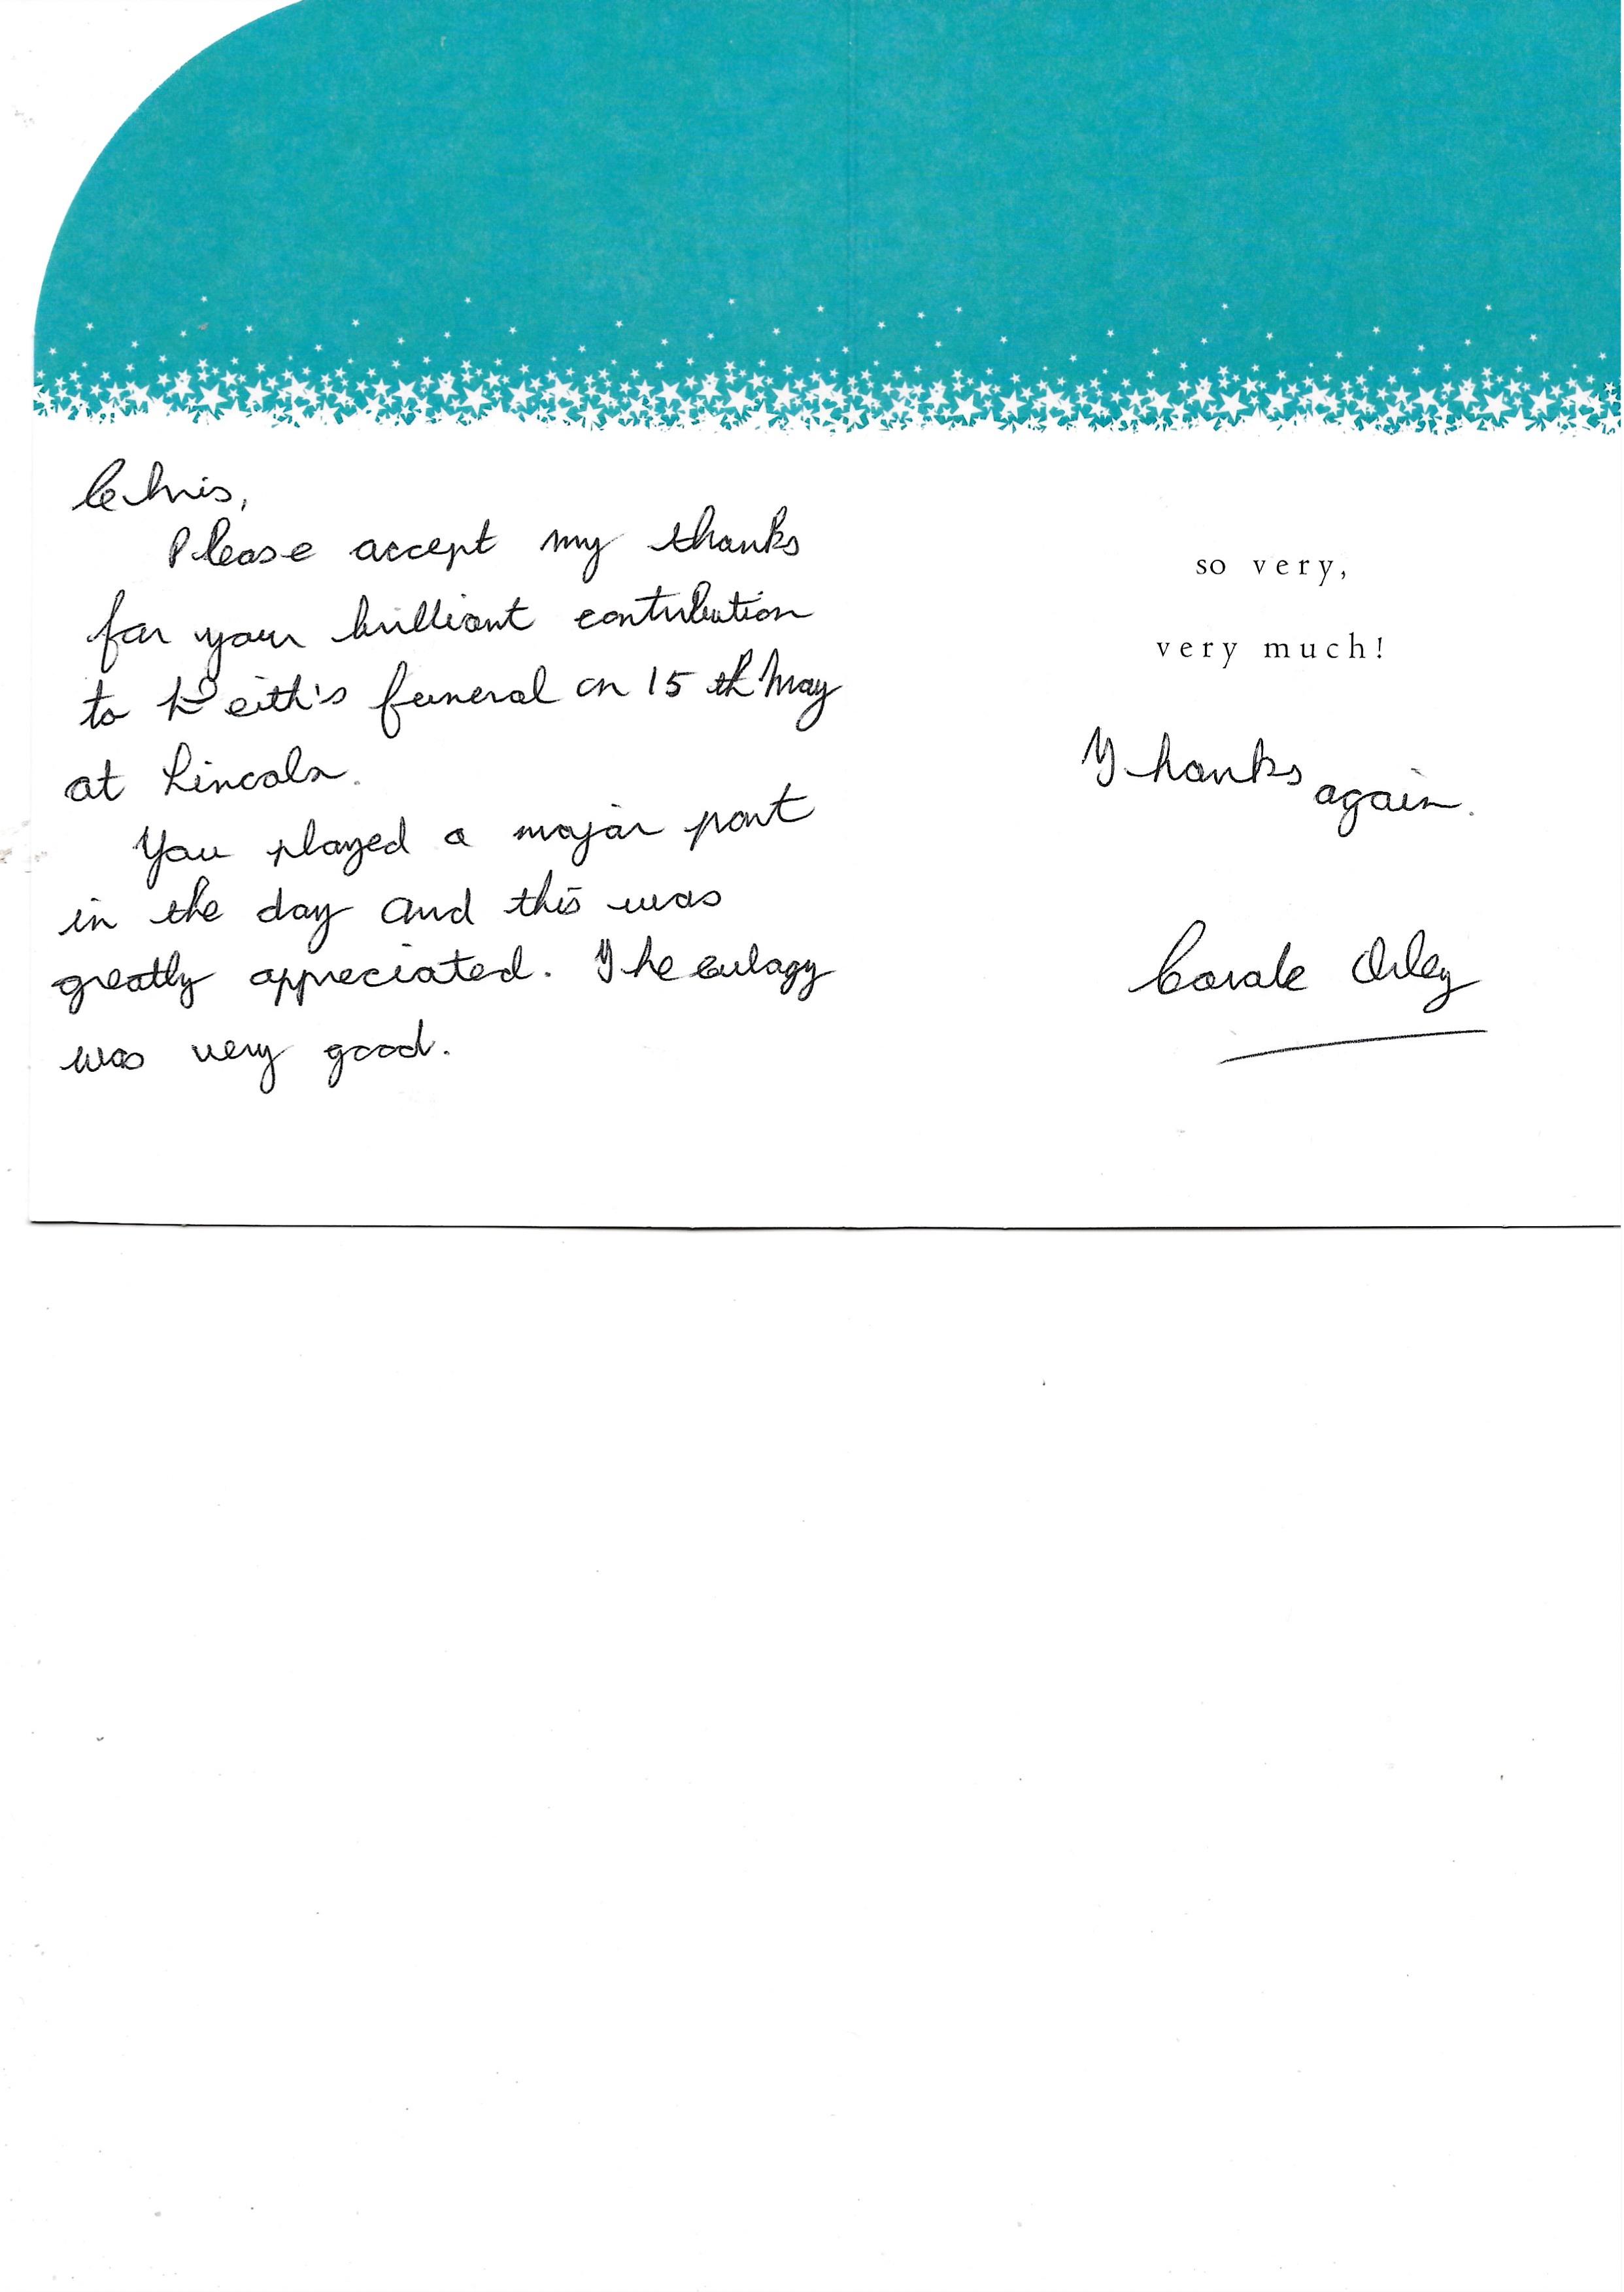 Chris,
Please accept my thanks
for your brilliant contribution
to Keith's funeral on 15th May
at Lincoln.
You played a major part
in the day and this was
greatly appreciated. The eulogy
was very good.
so very,
very much!
Thanks again.
Carole